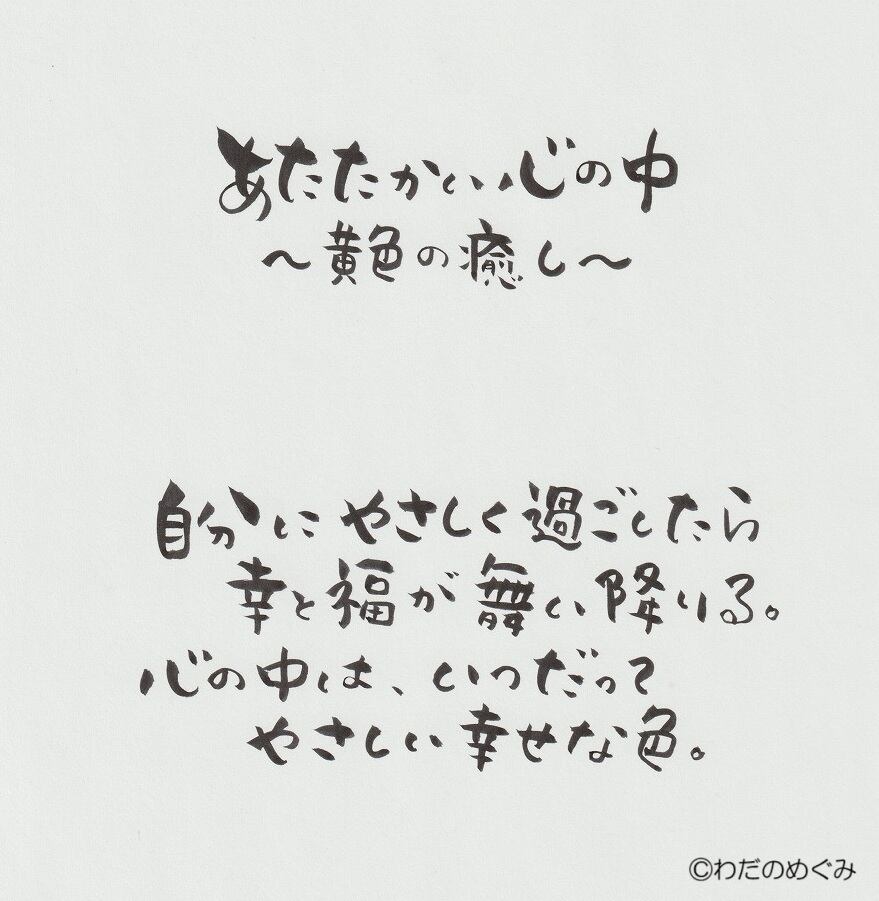 あたたかい心の中
～黄色の癒し～
自分にやさしく過ごしたら
幸と福が舞い降りる。
心の中は、いつだって
やさしい幸せな色。
©わだのめぐみ